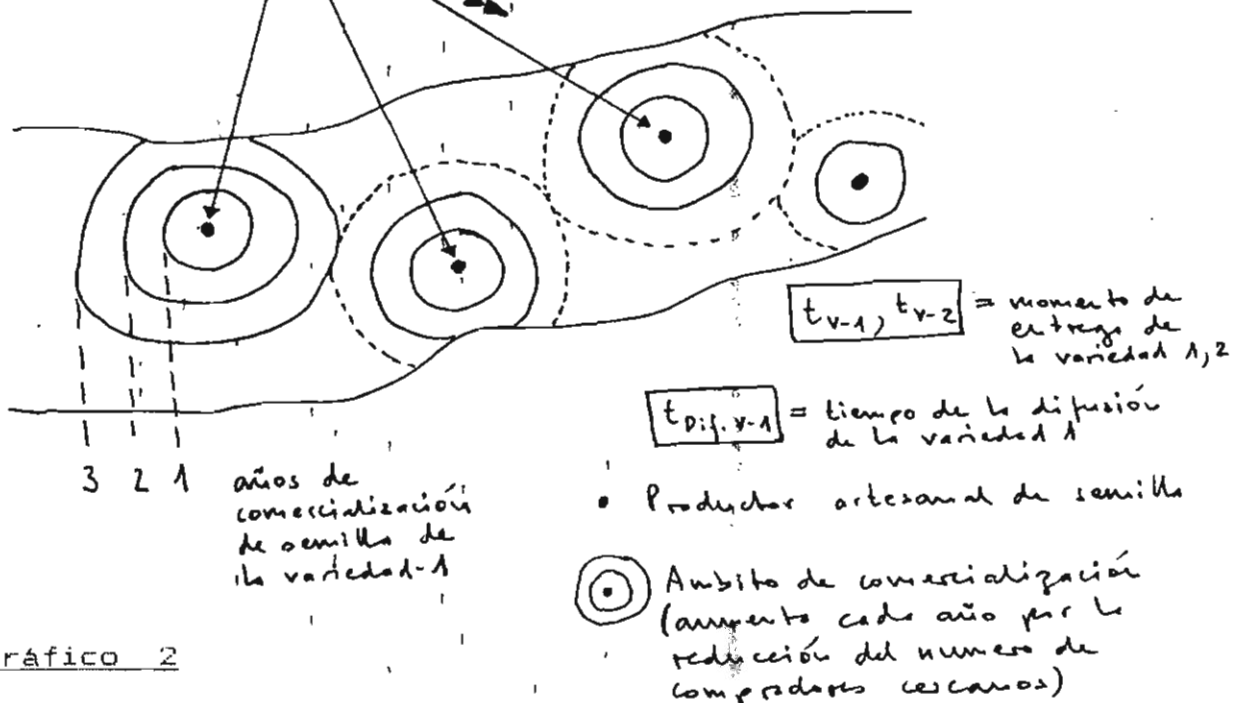 t v-1, t v-2 = momento de
entrega de
la variedad 1,2
t Dif. v-1 = tiempo de la difusión
de la variedad 1
3 2 1 años de
comercialización
de semilla de
la variedad-1
• Productor artesanal de semilla
Ambito de comercialización
(aumento cada año por la
reducción del numero de
compradores cercanos)
ráfico 2